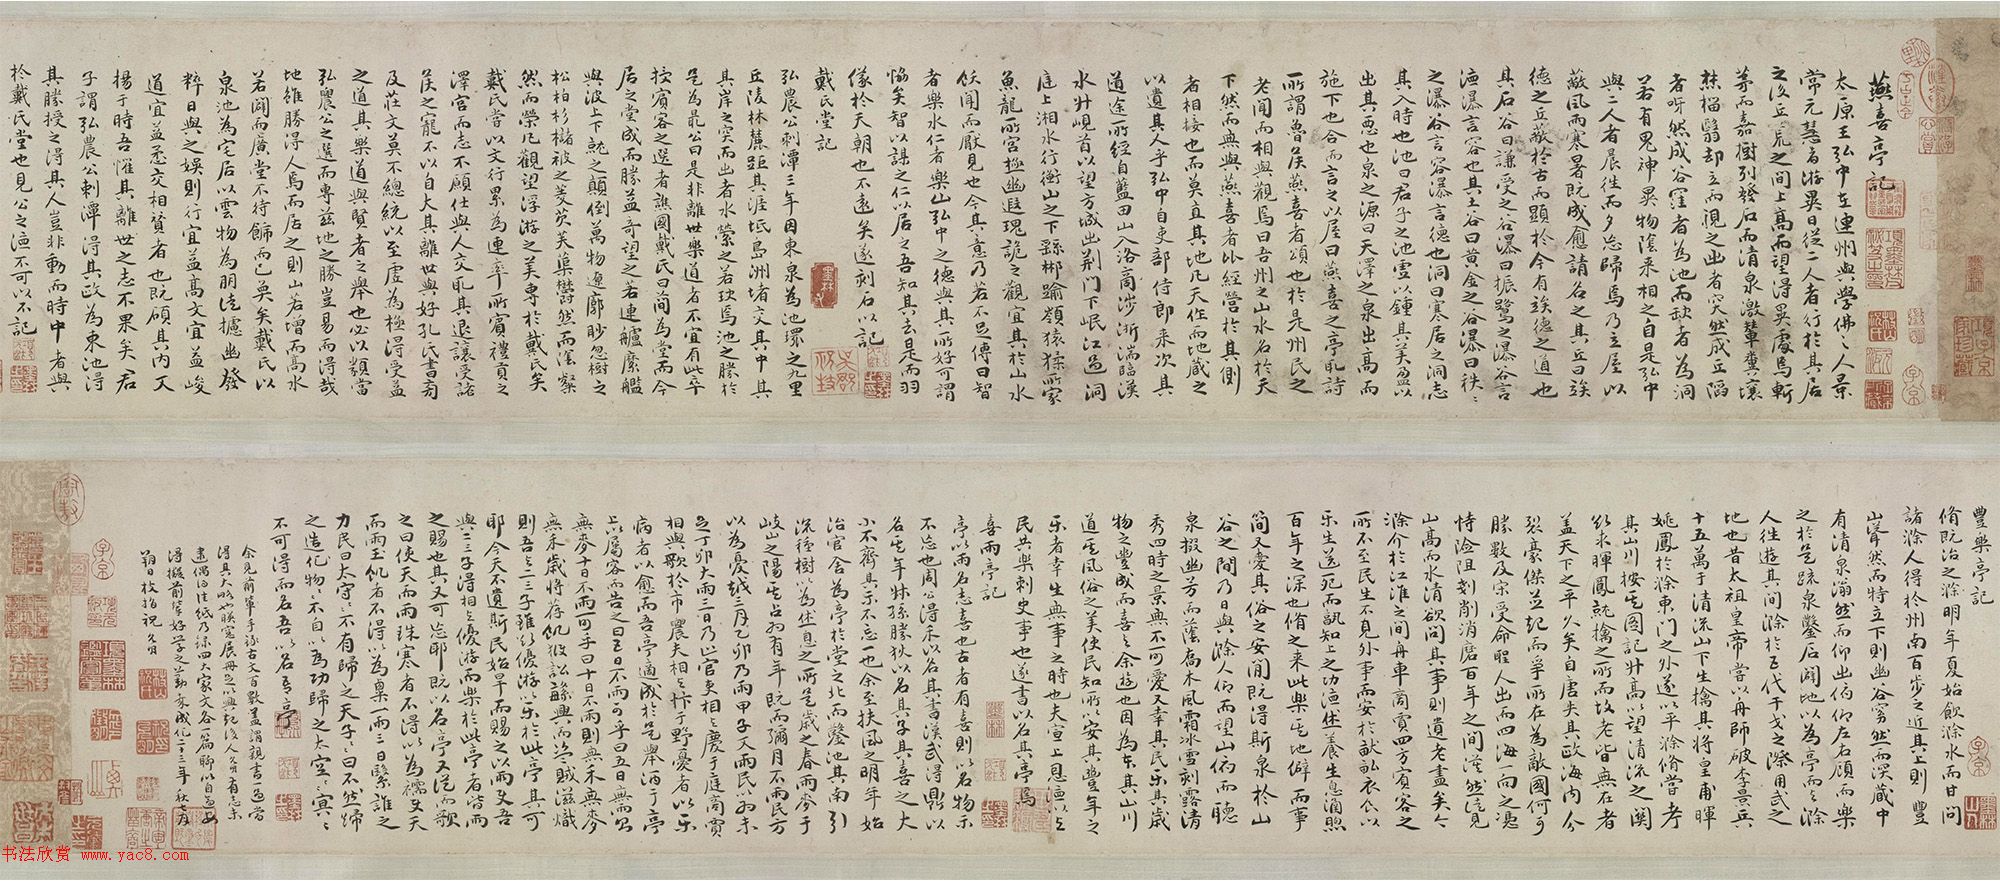 燕喜亭記
太原王弘中在連州與學佛〻人景
常元慧者游異日從二人者行於其居
之後丘荒之間上高而望得異處焉斬
茅而嘉樹列發石而清泉激輦糞壤
燔榴翳却立而視之出者突然成丘陷
者呀然成谷窪者為池而缺者為洞
若有鬼神異物陰來相之自是弘中
與二人者晨往而夕忘歸焉乃立屋以
蔽風雨寒暑既成愈請名之其丘曰竢
德之丘蔽於古而顯於今有竢德之道也
其石谷曰謙受之谷瀑曰振鷺之瀑谷言
德瀑言容也其土谷曰黃金之谷瀑曰秩〻
之瀑谷言容瀑言德也洞曰寒居之洞志
其入時也池曰君子之池虛以鍾其美盈以
出其惡也泉之源曰天澤之泉出高而
施下也合而言之以屋曰燕喜之亭取詩
所謂魯侯燕喜者頌也於是州民之
老聞而相與觀焉曰吾州之山水名於天
下然而無與燕喜者比經營於其側
者相接也而莫直其地凡天作而地藏之
以遺其人乎弘中自吏部侍郎來次其
道途所經自藍田山入洛商涉淅湍臨漢
水升峴首以望方城出荊門下岷江過洞
庭上湘水行衡山之下繇郴踰嶺猿狖所家
魚龍所宮極幽遐瑰詭之觀宜其於山水
飫聞而厭見也今其意乃若不足傳曰智
者樂水仁者樂山弘中之德與其所好可謂
恊矣智以謀之仁以居之吾知其去是而羽
儀於天朝也不遠矣遂刻石以記
戴氏堂記
弘農公刺潭三年因東泉為池環之九里
丘陵林麓距其涯坻島洲渚交其中其
其岸之突而出者水縈之若玦焉池之勝於
是為最公曰是非離世樂道者不宜有此卒
授賓客之選者譙國戴氏曰簡為堂而今
居之堂成而勝益奇望之若連艫縻艦
與波上下就之顛倒萬物遼廓眇忽樹之
松柏杉櫧被之菱芡芙蕖鬱然而陰粲
然而榮凡觀望浮游之美專於戴氏矣
戴氏嘗以文行累為連率所賓禮貢之
澤宮而志不願仕與人交取其退讓受諸
侯之寵不以自大其離世與好孔氏書旁
及莊文莫不總統以至虛為極得受益
之道其樂道與賢者之舉也必以類當
弘農公之選而專茲地之勝豈易而得哉
地雖勝得人焉而居之則山若增而高水
若闢而廣堂不待飾而已奐矣戴氏以
泉池為宅居以雲物為朋徒攄幽發
粹日與之娛則行宜益高文宜益峻
道宜益懋交相贊者也既碩其內又
揚于時吾懼其離世之志不果矣君
子謂弘農公刺潭得其政為東池得
其勝授之得其人豈非動而時中者與
於戴氏堂也見公之德不可以不記
豐樂亭記
脩既治之滁明年夏始飲滁水而甘問
諸滁人得於州南百步之近其上則豐
山聳然而特立下則幽谷窈然而深藏中
有清泉滃然而仰出俯仰左右顧而樂
之於是疏泉鑿石闢地以為亭而與滁
人往遊其間滁於五代干戈之際用武之
地也昔太祖皇帝嘗以舟師破李景兵
十五萬于清流山下生擒其將皇甫暉
姚鳳於滁東門之外遂以平滁脩嘗考
其山川按其圖記升高以望清流之關
欲求暉鳳就擒之所而故老皆無在者
蓋天下之平久矣自唐失其政海內分
裂豪傑並起而爭所在為敵國何可
勝數及宋受命聖人出而四海一向之憑
恃險阻剗削消磨百年之間漠然徒見
山高而水清欲問其事則遺老盡矣今
滁介於江淮之間舟車商賈四方賓客之
所不至民生不見外事而安於畎畝衣食以
樂生送死而孰知上之功德休養生息涵煦
百年之深也脩之來此樂其地僻而事
簡又愛其俗之安閒既得斯泉於山
谷之間乃日與滁人仰而望山俯而聽
泉掇幽芳而蔭喬木風霜冰雪刻露清
秀四時之景無不可愛又幸其民樂其歲
物之豐成而喜與余遊也因為本其山川
道其風俗之美使民知所以安其豐年之
樂者幸生無事之時也夫宣上恩德以與
民共樂刺史事也遂書以名其亭焉
喜雨亭記
亭以雨名志喜也古者有喜則以名物示
不忘也周公得禾以名其書漢武得鼎以
名其年叔孫勝狄以名其子其喜之大
小不齊其示不忘一也余至扶風之明年始
治官舍為亭於堂之北而鑿池其南引
流種樹以為休息之所是歲之春雨麥于
岐山之陽其占為有年既而彌月不雨民方
以為憂越三月乙卯乃雨甲子又雨民以為未
足丁卯大雨三日乃止官吏相與慶于庭商賈
相與歌於市農夫相與忭于野憂者以樂
病者以愈而吾亭適成於是舉酒于亭
上以屬客而告之曰五日不雨可乎曰五日無雨
無麥十日不雨可乎曰十日不雨則無禾無麥
無禾歲將荐饑獄訟繇興而盜賊滋熾
則吾與二三子雖欲優游以樂於此亭其可
耶今天不遺斯民始旱而賜之以雨使吾
與二三子得相與優游而樂於此亭者皆雨
之賜也其又可忘耶既以名亭又從而歌
之曰使天而雨珠寒者不得以為襦使天
而雨玉饑者不得以為粟一雨三日繄誰之
力民曰太守〻不有歸之天子〻曰不然歸
之造化物〻不自以為功歸之太空〻冥〻
不可得而名吾以名吾亭
余見前輩手錄古文百數
暇日枝指祝允明
书法欣赏 www.yac8.com